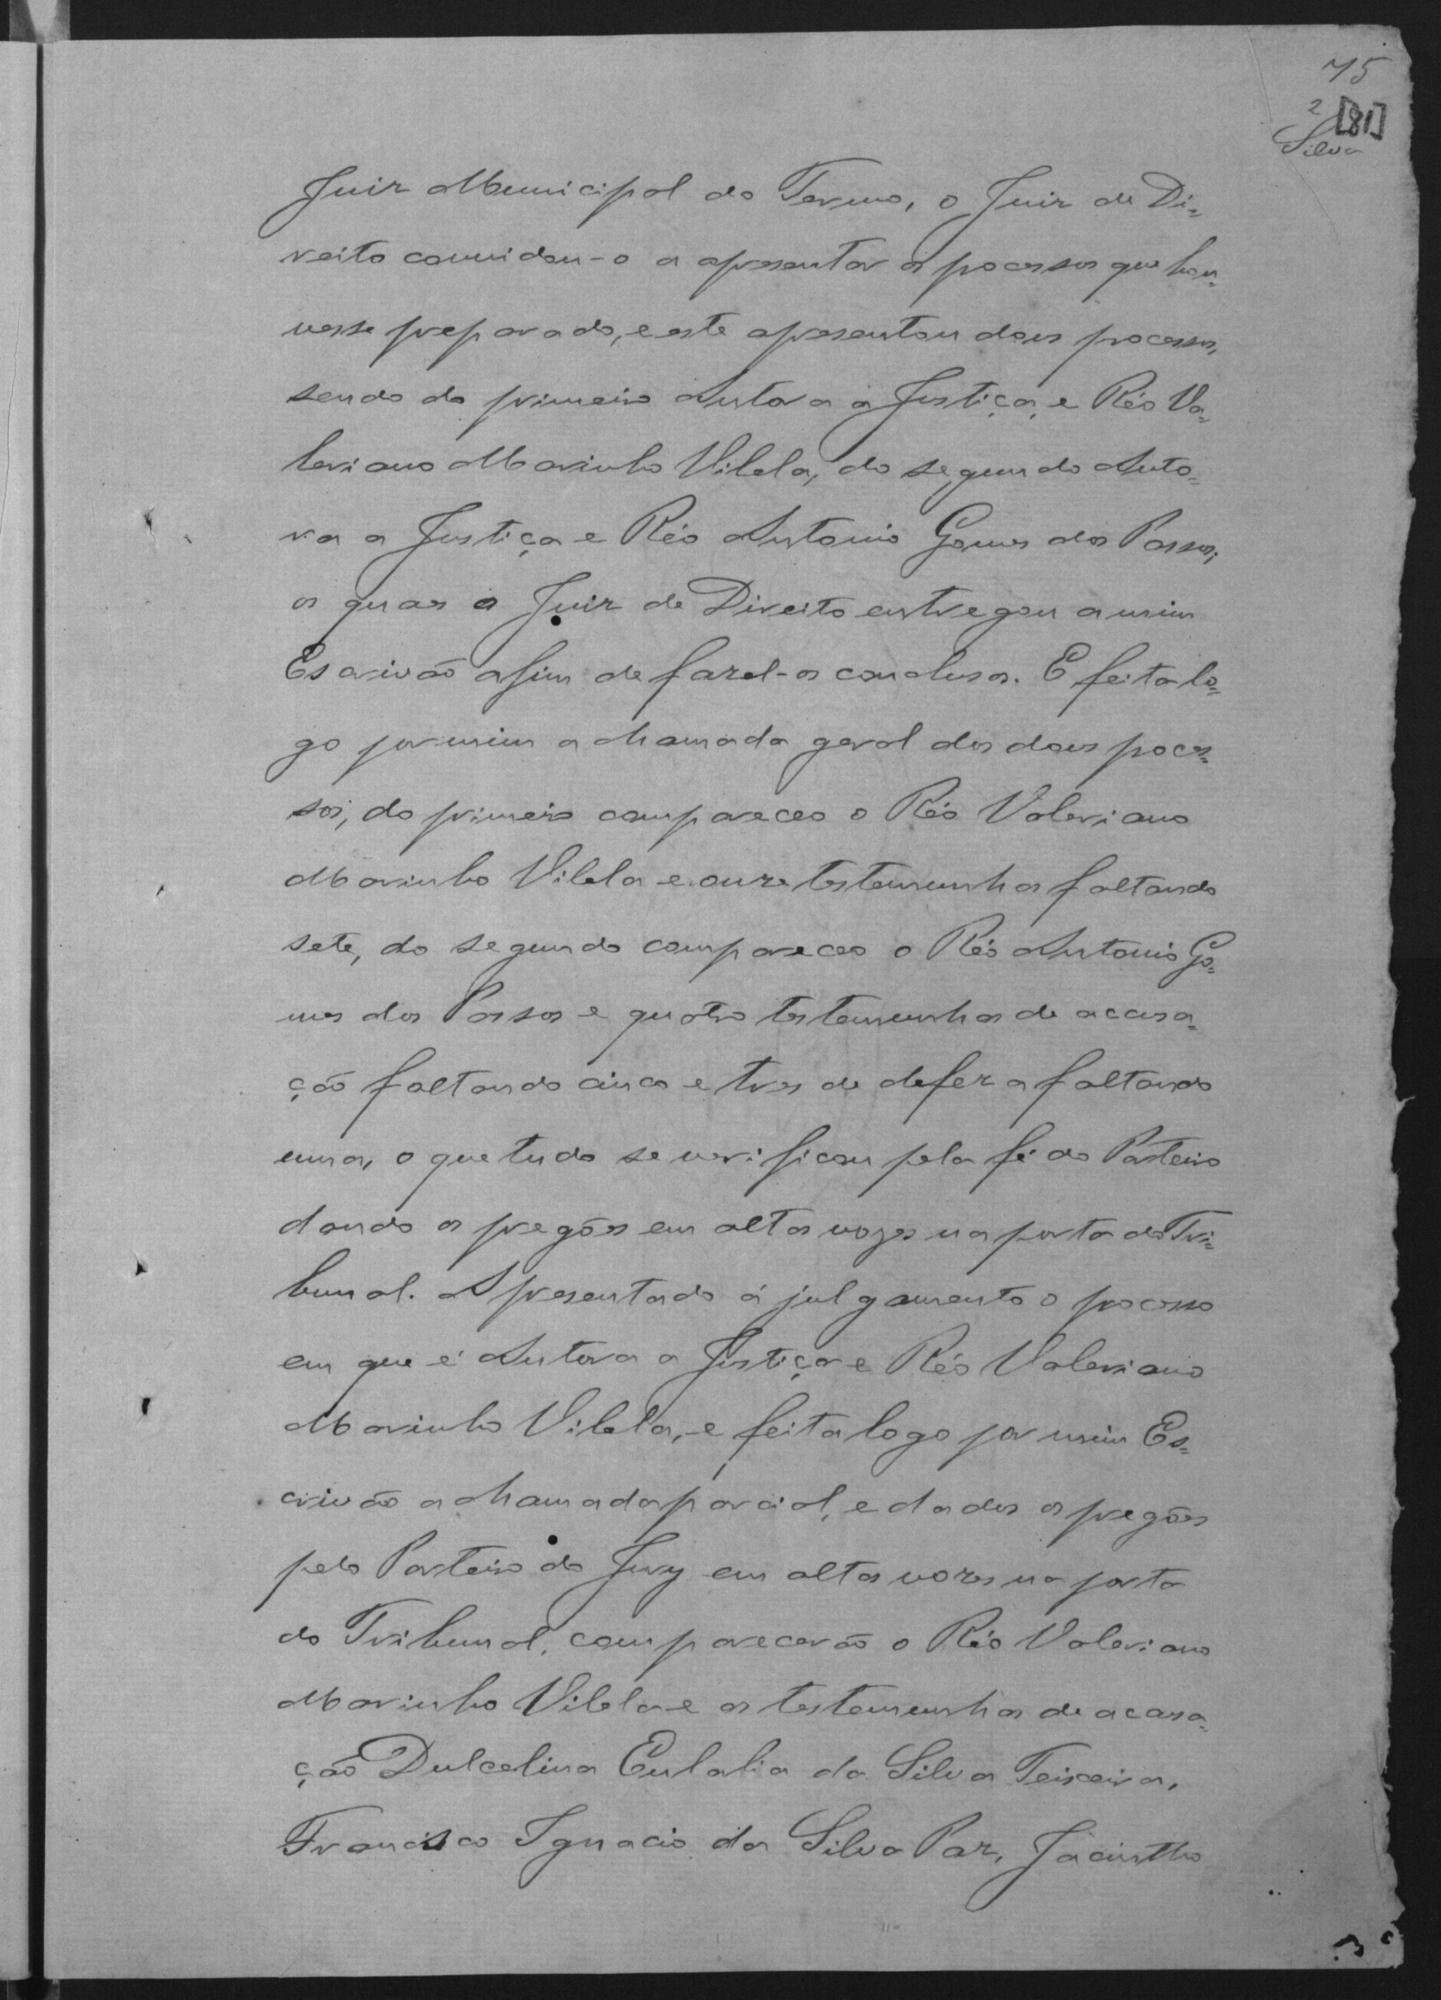 75
2 [81]
Silva
Juiz Municipal do Termo, o Juiz de Di=
reito convidou-o a apresentar os pocessos que hou=
vesse preparado, e este apresentou dous processos,
sendo do primeiro Autora a Justiça, e Réo Va=
leriano Marinho Vilela, do segundo Auto=
ra a Justiça e Réo Antonio Gomes dos Passos;
os quaes o Juiz de Direito entregou a mim
Escrivão afim de fazel-os conclusos. E feita lo=
go por mim a chamada geral dos dous poces=
sos, do primeiro compareceo o Réo Valeriano
Marinho Vilela e onze testemunhas faltando
sete, do segundo compareceo o Réo Antonio Go=
mes dos Passos e quatro testemunhas de accusa=
ção faltando cinco e tres de defeza faltando
uma, o que tudo se verificou pela fé do Porteiro
dando os pregões em altas vozes na porta do Tri=
bunal. Apresentado á julgamento o processo
em que é Autora a Justiça e Réo Valeriano
Marinho Vilela, e feita logo por mim Es=
crivão a chamada parcial, e dados os pregões
pelo Porteiro do Jury em altas vozes na porta
do Tribunal, comparecerão o Réo Valeriano
Marinho Vilela e as testemunhas de acusa=
ção Dulcelina Eulalia da Silva Teixeira,
Francisco Ignacio da Silva Paz, Jacintho